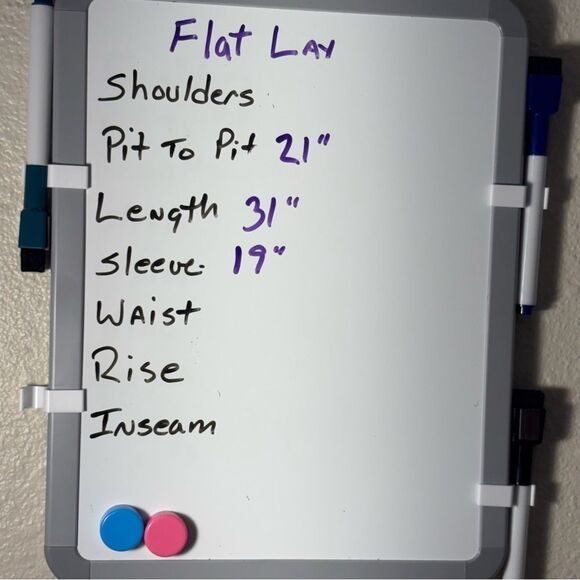 Flat Lay
Shoulders
Pit To Pit 21"
Length 31"
Sleeve 19"
Waist
Rise
Inseam